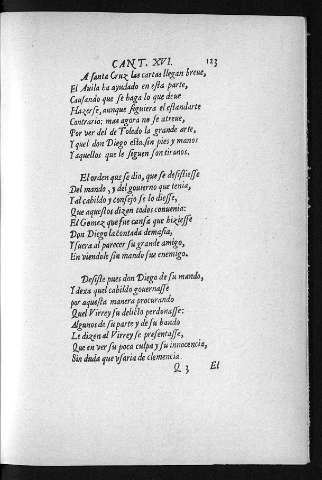 CANT. XVI. 123
A santa Cruz las cartas llegan breue,
El Auila ha ayudado en esta parte,
Causando que se haga lo que deue
Hazerse, aunque siguiera el estandarte
Contrario: mas agora no se atreue,
Por ver del de Toledo la grande arte,
Y quel don Diego esta, sin pies y manos
Y aquellos que le siguen son tiranos.
El orden que se dio, que se desistiesse
Del mando, y del gouierno que tenia,
Y al cabildo y consejo se lo diesse,
Que aquestos dizen todos conuenia:
El Gomez que fue causa que hiziesse
Don Diego la contada demasia,
Y fuera al parecer su grande amigo,
En viendole sin mando fue enemigo.
Desiste pues don Diego de su mando,
Y dexa quel cabildo gouernasse
Por aquesta manera procurando
Quel Virrey su delicto perdonasse:
Algunos de su parte y de su bando
Le dizen al Virrey se presentasse,
Que en ver su poca culpa y su innocencia,
Sin duda que vsaria de clemencia.
Q 3 El